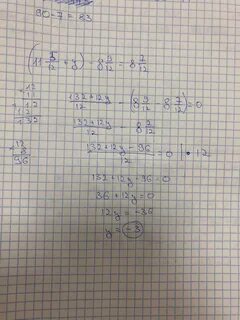 90-7=83
(11 5/12 + y) - 8 9/12 = 8 7/12
132+12y/12 - (8 9/12 - 8 7/12)=0
132+12y/12 - 8 2/12
132+12y-96/12 = 0 | · 12
132+12y-96=0
36+12y=0
12y=-36
y=-3
12
11
12
132
12
8
96